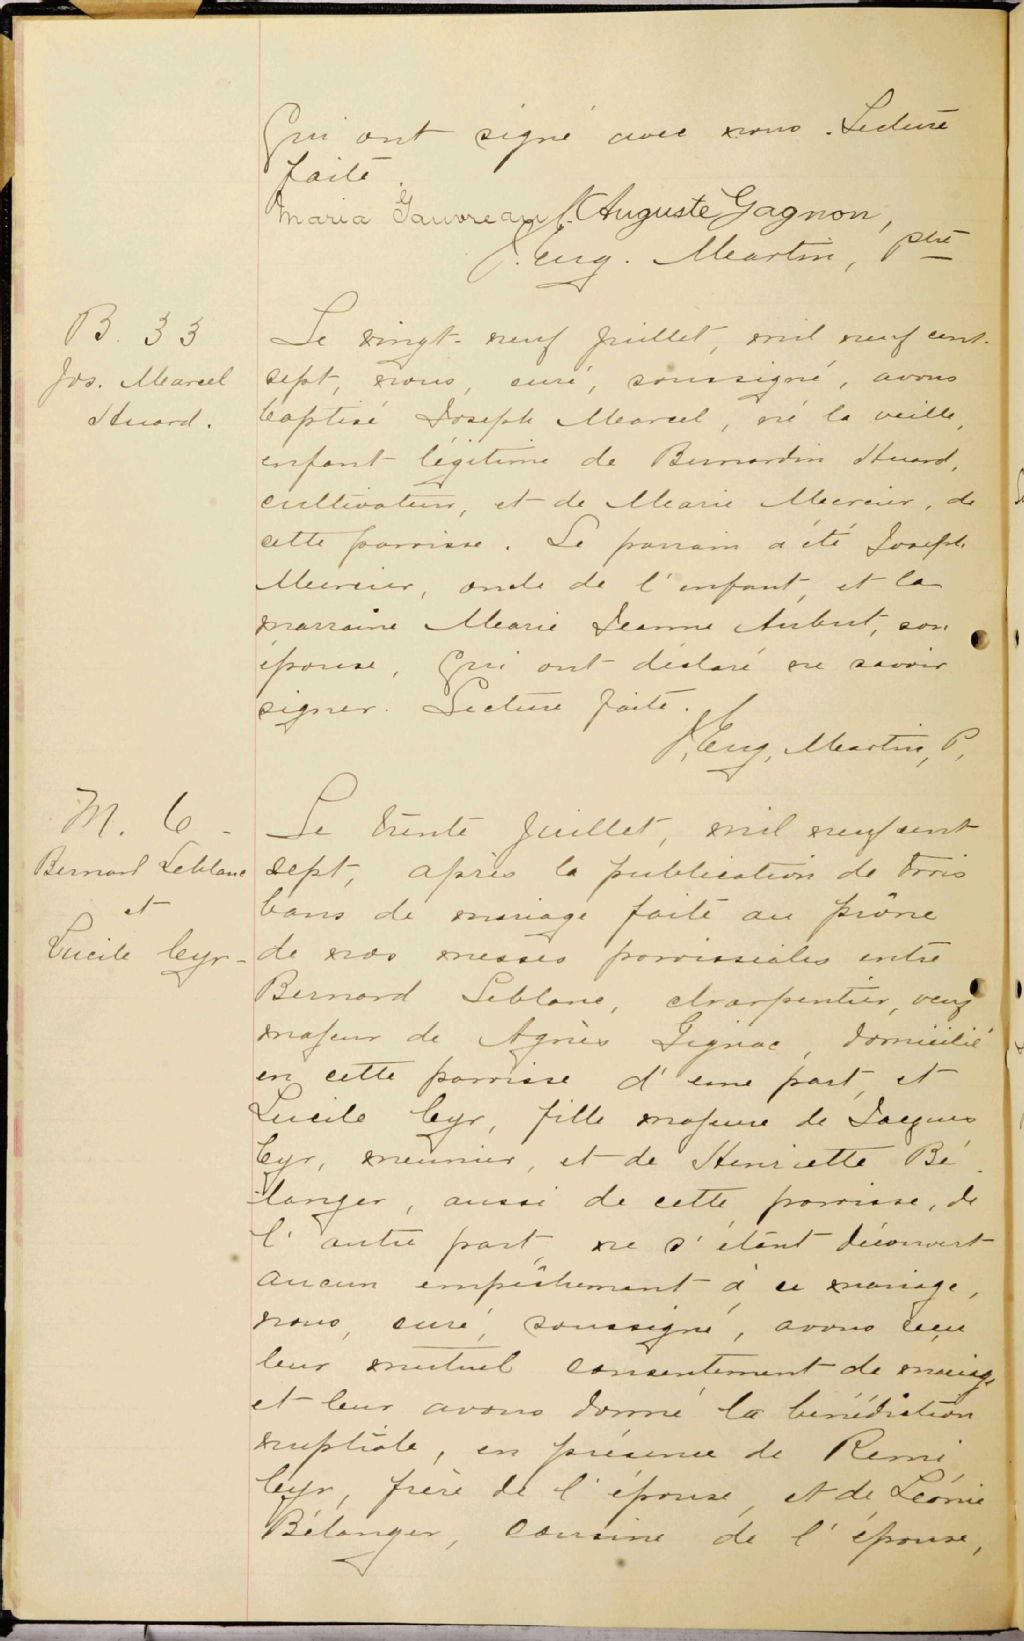 Qui ont signé avec nous. Lecture
faite.
Maria Gauvreau J. Auguste Gagnon,
J. Eug. Martin, Ptre
B. 33
Jos. Marcel
Huard.
Le vingt-neuf juillet, mil neuf cent-
sept, nous, curé, soussigné, avons
baptisé Joseph Marcel, né la veille,
enfant légitime de Bernardin Huard,
cultivateur, et de Marie Mercier, de
cette paroisse. Le parrain a été Joseph
Mercier, oncle de l'enfant, et la
marraine Marie Jeanne Aubut, son
épouse, Qui ont déclaré ne savoir
signer. Lecture faite.
J. Eug. Martin, P.
M. 6 -
Bernard Leblanc
et
Lucile Cyr -
Le trente juillet, mil neuf cent
sept, après la publication de trois
bans de mariage faite au prône
de nos messes paroissiales entre
Bernard Leblanc, charpentier, veuf
majeur de Agnès Gignac, domicilié
en cette paroisse d'une part, et
Lucile Cyr, fille majeure de Jacques
Cyr, meunier, et de Henriette Bé-
langer, aussi de cette paroisse, de
l'autre part, ne s'étant découvert
aucun empêchement à ce mariage,
nous, curé, soussigné, avons reçu
leur mutuel consentement de mariage
et leur avons donné la bénédiction
nuptiale, en présence de Remi
Cyr, frère de l'épouse, et de Léonie
Bélanger, cousine de l'épouse,